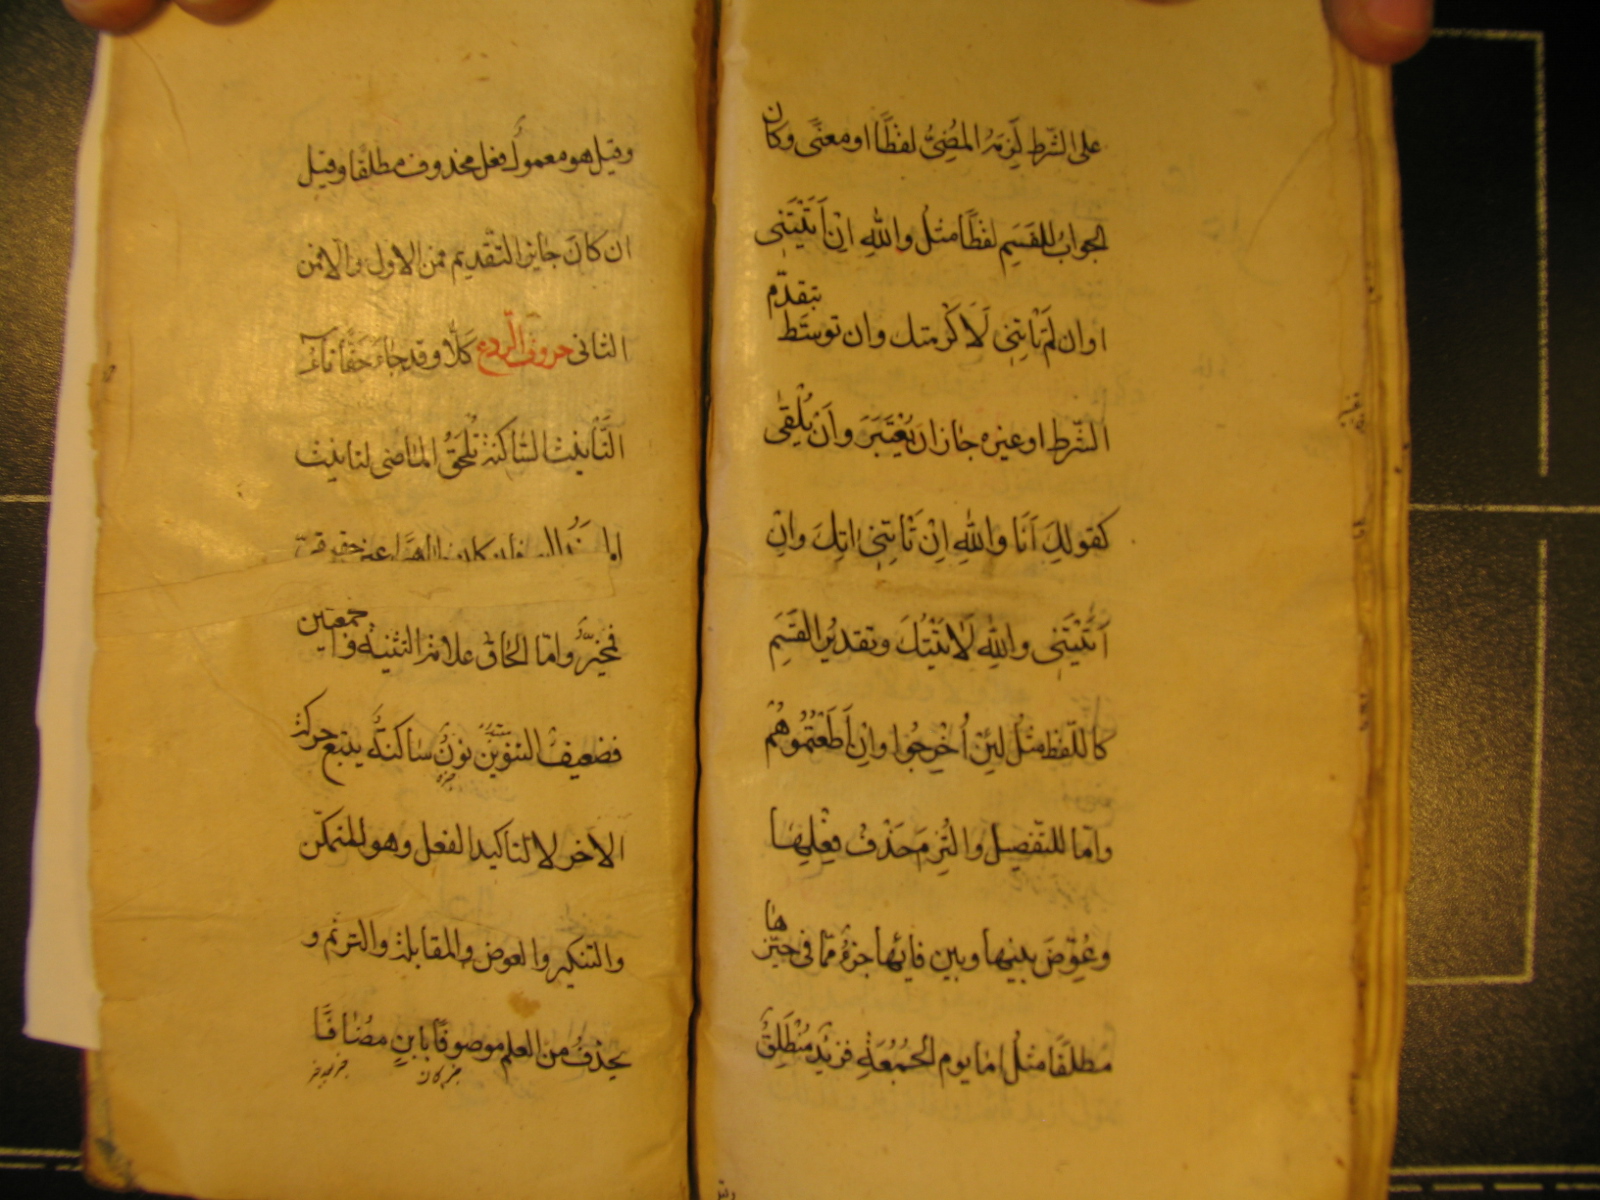 على الشّرط لَزِمَهُ المضِىُّ لفظًا او معنًى وكان
الجوابُ للقَسَمِ لفظًا مثلُ واللّٰهِ اِنْ اَتَيْتَنِى
او ان لَمْ تَاْتِنِى لَاَكْرَمتك وان توسّط بتقدّم
الشّرط او غيره جاز ان يُعْتَبَرَ واَنْ يُلْقٰى
كقولك اَنَا واللّٰهِ اِنْ تَاْتِنِى اٰتِكَ واِنْ
اَتَيْتَنِى واللّٰهِ لَاٰتَيْتُكَ وتقديرُ القَسَمِ
كاللّفظ مثلُ لَئِنْ اُخْرِجُوا واِنْ اَطَعْتُمُوهُمْ
وامّا للتّفصيل والتُزِمَ حَذْفُ فِعْلِهَا
وعُوِّضَ بينها وبين فائها جزءٌ ممّا فى حيّزها
مطلقًا مثلُ امّا يوم الجُمُعَةِ فزيْدٌ مُنْطَلِقٌ
وقيل هو معمولُ فعل محذوف مطلقًا وقيل
ان كان جايز التّقديم فمن الاول والّا فمن
الثانى حروف الرّدع كَلّا وقد جاءَ حَقًّا تاءُ
التّأنيث الساكنة تُلْحَقُ الماضى لتانيث
فمخيّرٌ وامّا الحاق علامة التثنية والجمعين
فضعيفٌ التنوين نونٌ ساكنةٌ يتبع حركة
الاٰخر لا لتاكيد الفعل وهو للتمكّن
والتنكير والعوض والمقابلة والترنّم و
يحذفُ من العلم موصوفًا بابنٍ مضافًا